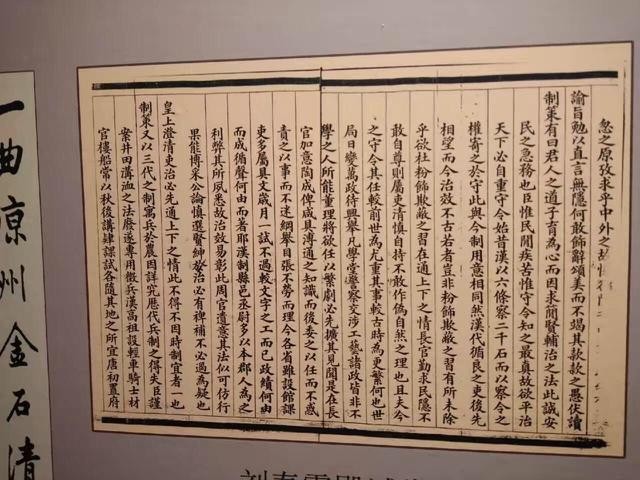 忽之原孜求乎中外之故
諭旨勉以直言無隱何敢飾辭頌美而不竭其款款之愚伏讀
制策有曰君人之道子育為心而因求簡賢輔治之法此誠安
民之急務也臣惟民間疾苦惟守令知之最真故欲平治
天下必自重守令始昔漢以六條察二千石而以察令之
權寄之於守此與今制用意相同然漢代循良之吏後先
相望而今治效不古若者豈非粉飾欺蔽之習有所未除
乎欲杜粉飾欺蔽之習在通上下之情長官勤求民隱不
敢自尊則屬吏清慎自持不敢作偽自然之理也且夫今
之守令其任較前世為尤重其事較古時為更繁何也世
局日變萬政待興舉凡學堂警察交涉工藝諸政皆非不
學之人所能董理將欲任以繁劇必先擴其見聞是在長
官加意陶成俾咸具溥通之知識而後委之以任而不惑
責之以事而不迷綱舉目張不勞而理今各省雖設館課
吏多屬具文歲月一試不過較文字之工而已政績何由
而成循聲何由而著耶漢制縣邑丞尉多以本郡人為之
利弊其所夙悉故治效易彰此周官遺意其法似可仿行
果能博采公論慎選賢紳故治必有裨補不必過為疑也
皇上澄清吏治必先通上下之情此不得不因時制宜者一也
制策又以三代之制寓兵於農因詳究歷代兵制之得失臣謹
案井田溝洫之法廢遂專用徵兵漢高祖設輕車騎士材
官樓船常以秋後講肄課試各隨其地之所宜唐初置府
一曲凉州金石清